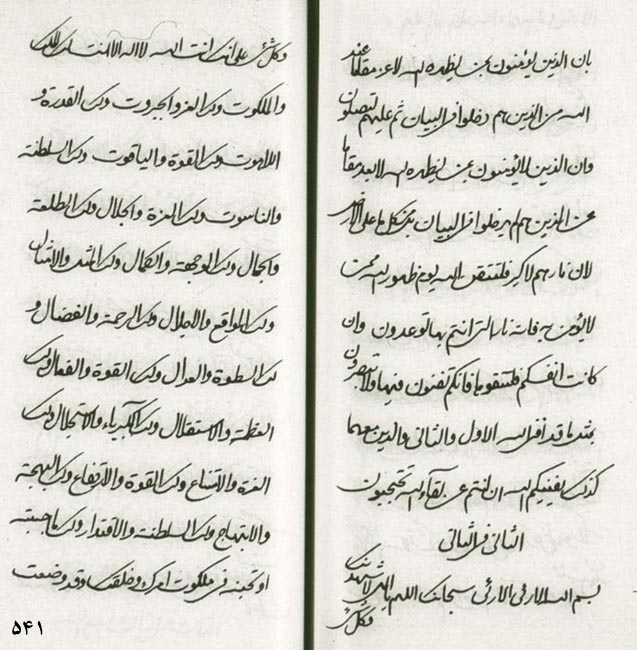 بان الذین یؤمنون بمن یظهره الله لاعز مقاما عند
الله من الذین هم دخلوا فی البیان ثم علیهم لتصلون
وان الذین لا یؤمنون بمن یظهره الله لابعد مقاما
من الذین هم لم یدخلوا فی البیان کل ما علی الارض
لان نارهم لاکبر فلتتقن الله یوم ظهور الله ممن
لا یؤمن به فانه نار التی انتم بها توعدون وان
کانت انفسکم فلتتقوها فانکم تفنون فیها ولا تبصرون
بمثل ما قد افنی الله الاول والثانی والذین معهما
کذلک یفنیکم الله ان انتم عن لقاء الله تحتجبون
الثانی فی الثانی
بسم الله سبحانک اللهم یا الهی لاشهدنک
وکلشئ
وکلشئ علی انک انت الله لا اله الا انت لک الملک
والملکوت ولک العز والجبروت ولک القدرة و
اللاهوت ولک القوة والیاقوت ولک السلطنة
والناسوت ولک العزة والجلال ولک الطلعة
والجمال ولک الوجهة والکمال ولک المثل والامثال
ولک المواقع والاجلال ولک الرحمة والفضال و
لک السطوة والعدال ولک القوة والفعال ولک
العظمة والاستقلال ولک الکبریاء والاستجلال ولک
العزة والامتناع ولک القوة والارتفاع ولک البهجة
والابتهاج ولک السلطنة والاقتدار ولک ما احببته
او تحبنه فی ملکوت امرک وخلقک وقد وضعت
۵۴۱